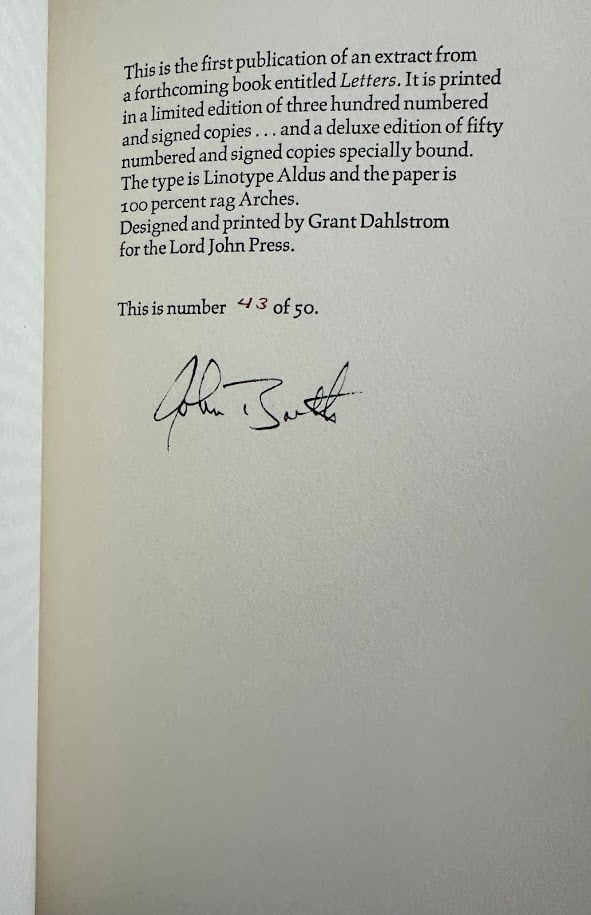 This is the first publication of an extract from
a forthcoming book entitled Letters. It is printed
in a limited edition of three hundred numbered
and signed copies . . . and a deluxe edition of fifty
numbered and signed copies specially bound.
The type is Linotype Aldus and the paper is
100 percent rag Arches.
Designed and printed by Grant Dahlstrom
for the Lord John Press.
This is number 43 of 50.
John Barth